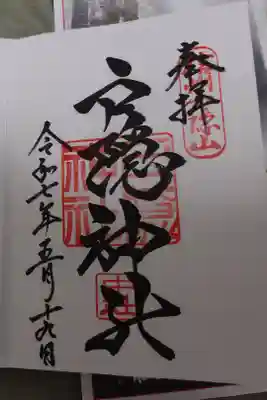 奉拝
戸隠神社
令和七年五月十九日